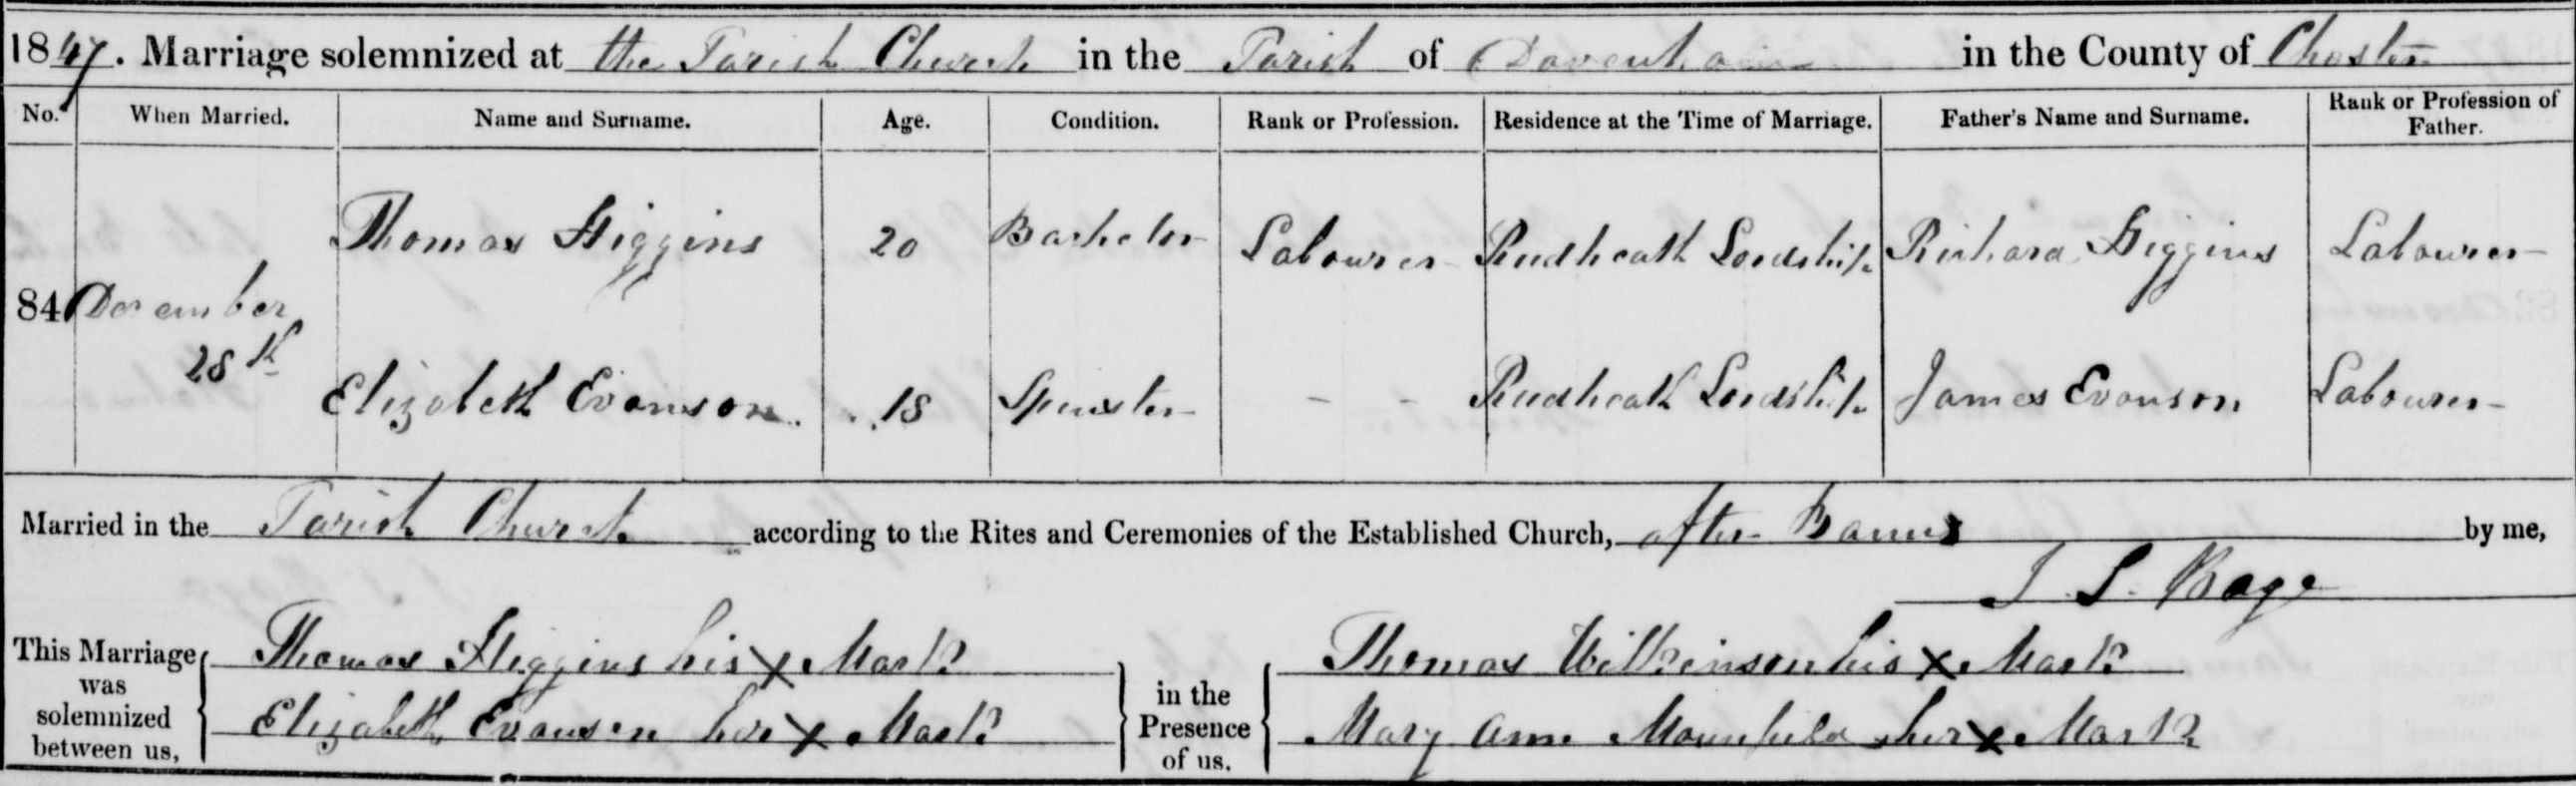 1847. Marriage solemnized at the Parish Church in the Parish of Davenham in the County of Chester
No. When Married. Name and Surname. Age. Condition. Rank or Profession. Residence at the Time of Marriage. Father's Name and Surname. Rank or Profession of Father.
84 December 28th
Thomas Higgins 20 Bachelor Labourer Rudheath Lordship Richard Higgins Labourer
Elizabeth Evanson 18 Spinster - - Rudheath Lordship James Evanson Labourer
Married in the Parish Church according to the Rites and Ceremonies of the Established Church, after Banns by me,
J. S. Bage
This Marriage was solemnized between us,
Thomas Higgins his x Mark
Elizabeth Evanson her x Mark
in the Presence of us.
Thomas Wilkinson his x Mark
Mary Ann Mounfield her x Mark